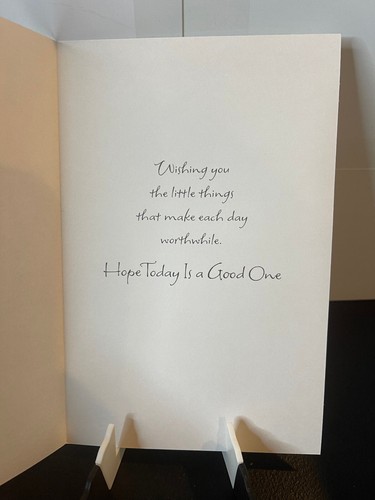 Wishing you
the little things
that make each day
worthwhile.
Hope Today Is a Good One